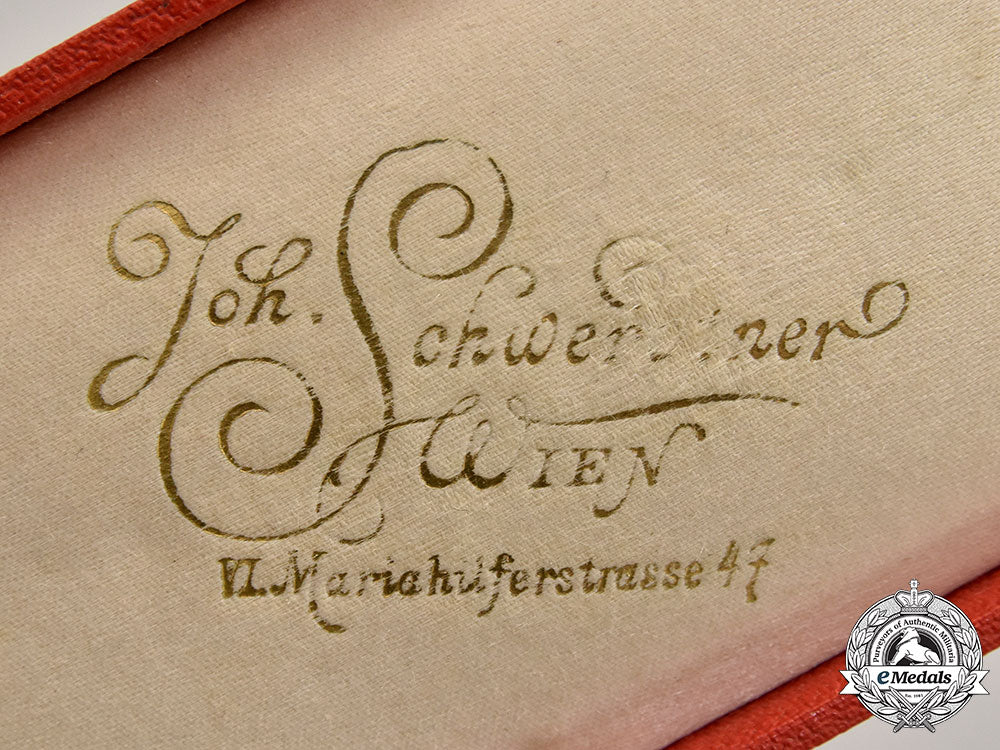 Joh. Schwerdtner
WIEN
VI. Mariahilferstrasse 47
Purveyors of Authentic Militaria
eMedals
Est. 1985